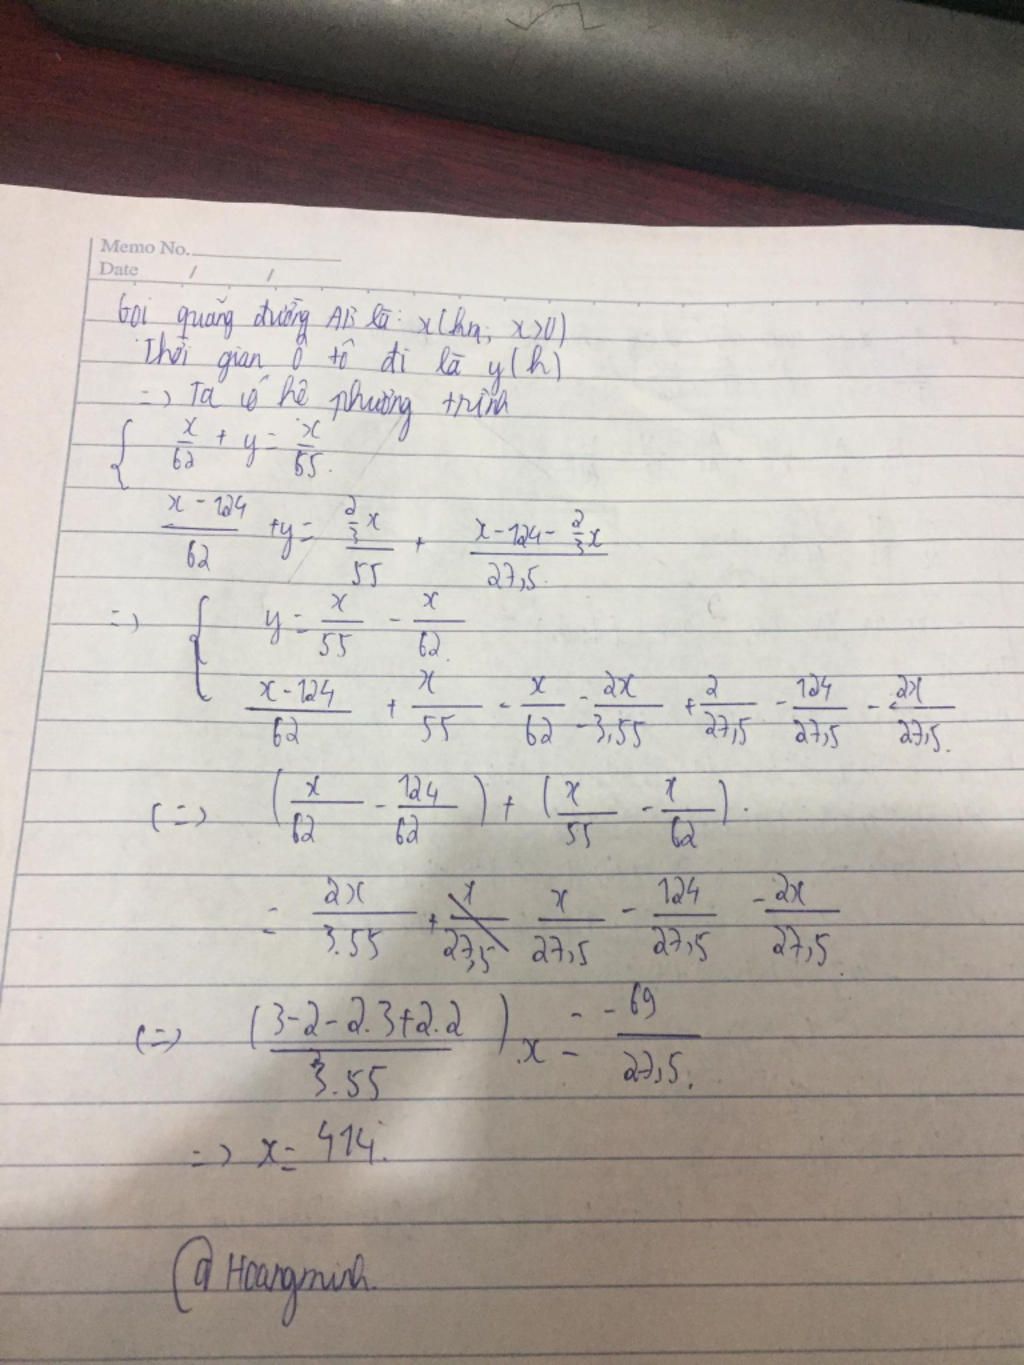 Memo No.
Date / /
Gọi quãng đường AB là: x(km; x>0)
Thời gian ô tô đi là y(h)
=> Ta có hệ phương trình
{ x/62 + y = x/55.
(x - 124)/62 + y = (2/3 x)/55 + (x - 124 - 2/3 x)/27,5.
=> { y = x/55 - x/62.
(x - 124)/62 + x/55 - x/62 - 2x/3,55 + 2/27,5 - 124/27,5 - 2x/27,5.
(=) (x/62 - 124/62) + (x/55 - x/62).
= 2x/3.55 + x/27,5 x/27,5 - 124/27,5 - 2x/27,5.
(=) ((3-2-2.3+2.2)/3.55).x = -69/27,5.
=> x = 414.
@Hoangminh.